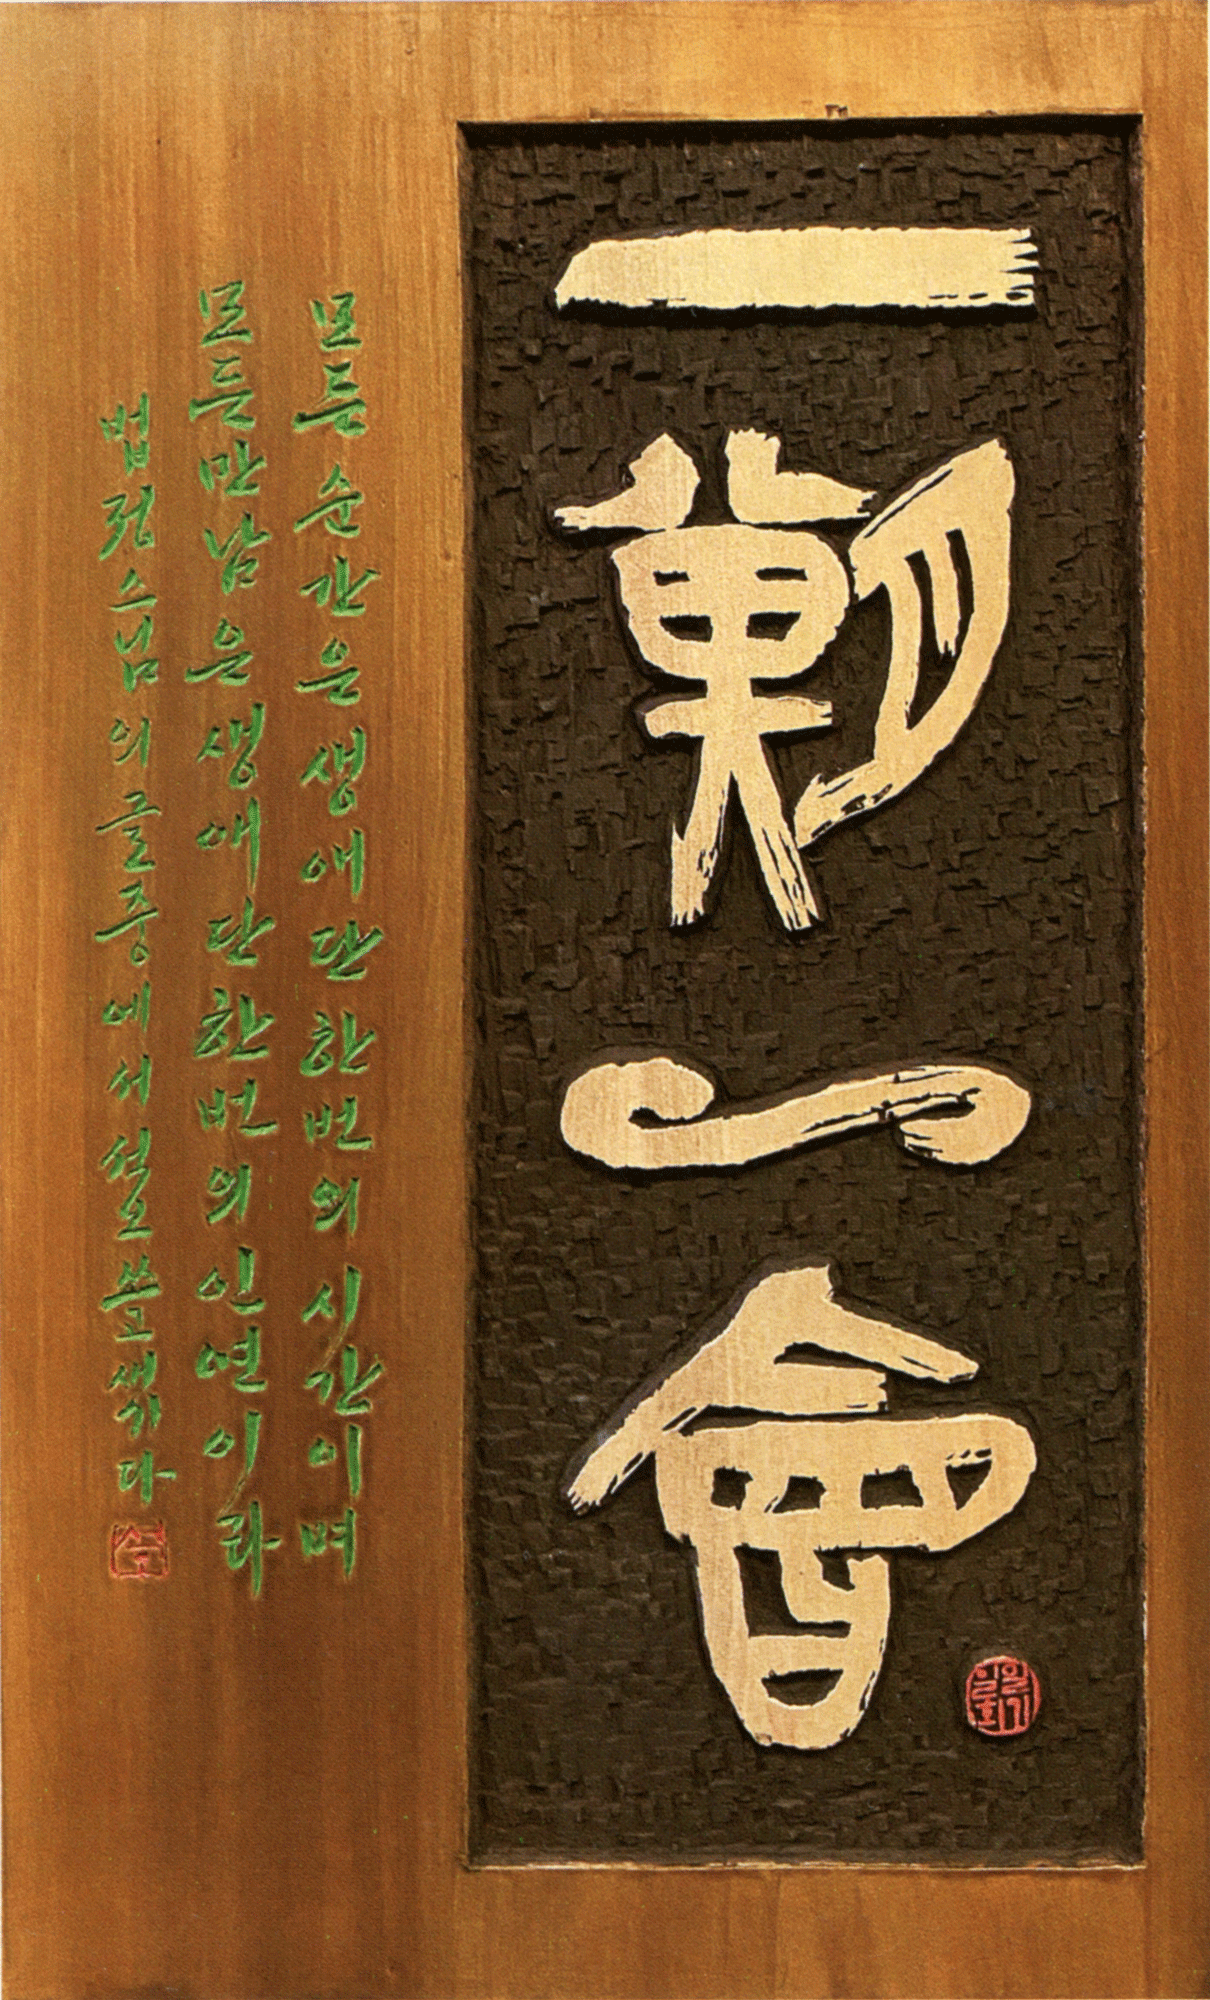 一期一會
모든 순간은 생애 단 한번의 시간이며
모든 만남은 생애 단 한번의 인연이라
법정스님의 글 중에서 쓰고 새기다
일기일회